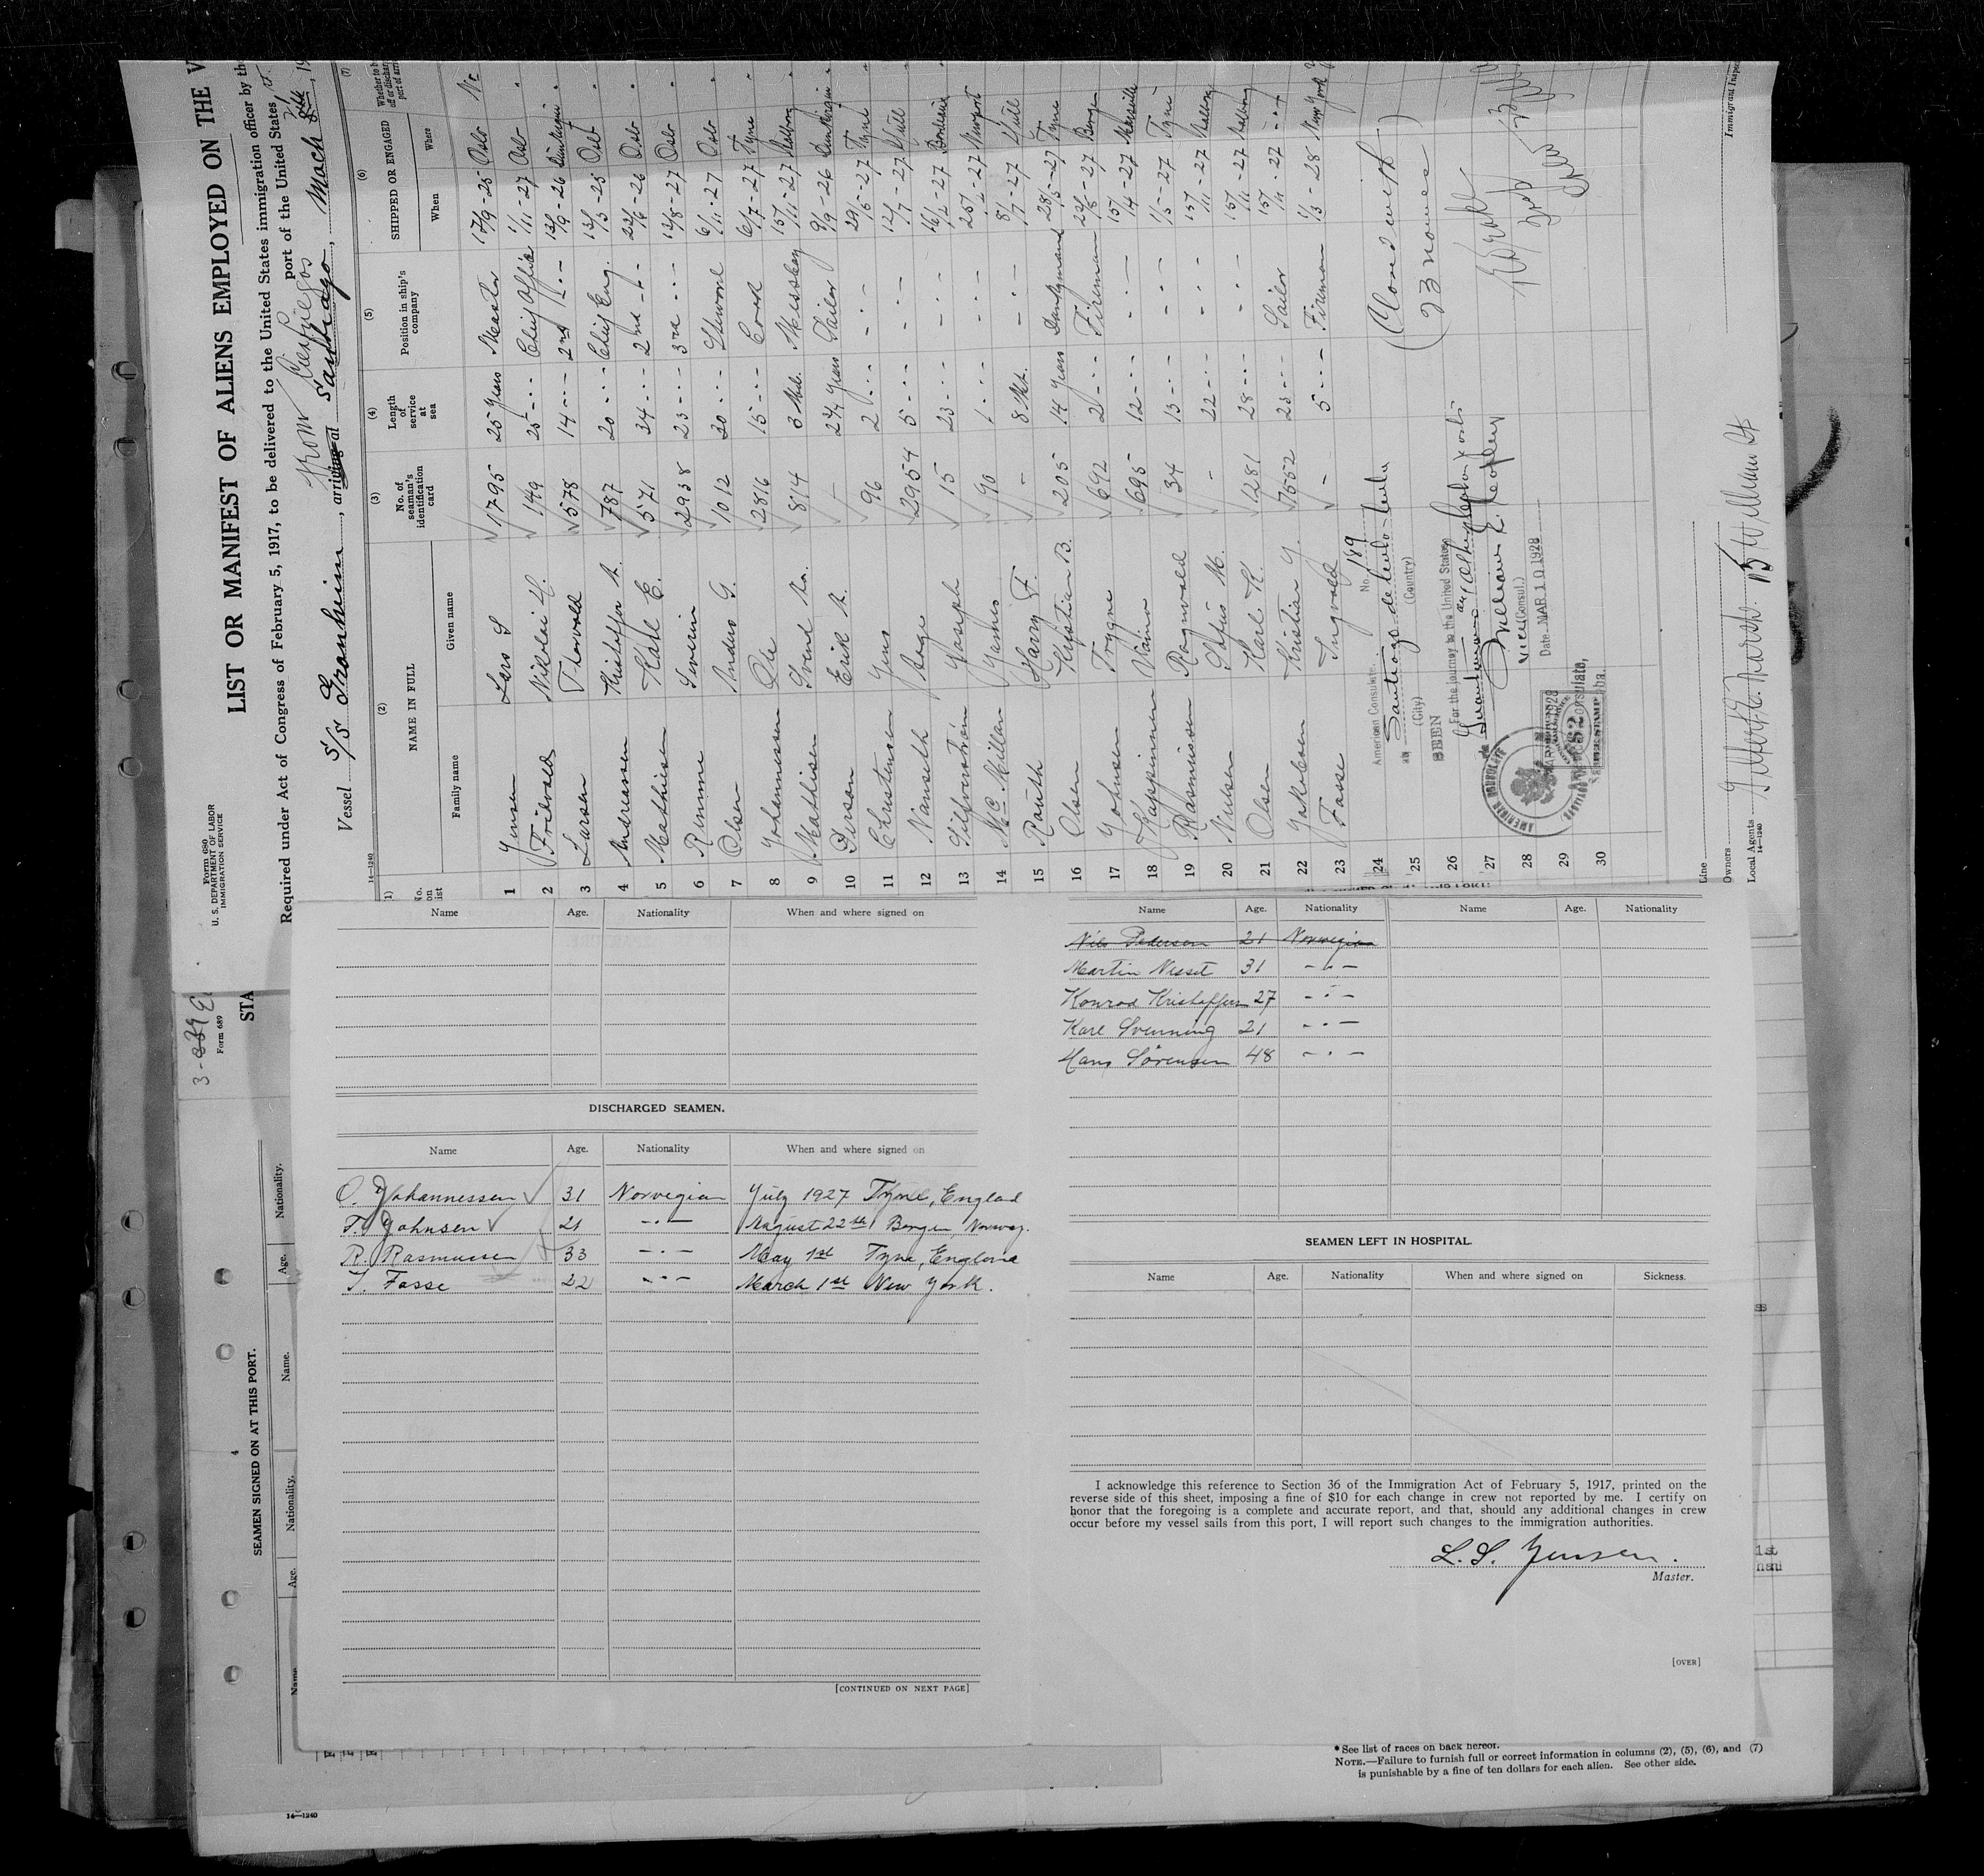 Form 680
U. S. DEPARTMENT OF LABOR
IMMIGRATION SERVICE
LIST OR MANIFEST OF ALIENS EMPLOYED ON THE V
Required under Act of Congress of February 5, 1917, to be delivered to the United States immigration officer by the
port of the United States
from Cienfuegos
Vessel S/S Tronheim, arriving at Santiago, Mach
14—1240
(1) (2) (3) (4) (5) (6) (7)
No. on list NAME IN FULL No. of seaman's identification card Length of service at sea Position in ship's company SHIPPED OR ENGAGED
Family name Given name When Where
1 Jensen Lars S 1795 25 years Master 17/9-25 Oslo
2 Frilvold Nikolai 149 25 - - - Chief Office 1/11-27 Oslo
3 Larsen Thorvald 578 14 - - - 2nd
4 Andreassen Kristoffer A. 787 20 - - - Chief Eng. Oslo
5 Mathisen Kåle E. 571 34 - - - 2nd Oslo
6 Rimme Severin 2938 23 - - - 3rd - - - Oslo
7 Olsen Anders G. 1012 30 - - - Steward 6/11-27 Oslo
8 Johannessen Ole 2816 15 - - - Cook 6/7-27 Tyne
9 Mathisen Svend Aa. 814 3 Mt. Messboy 15/11-27 Aalborg
10 Person Erik A. - 2¾ years Sailor 9/9-26
11 Christensen Jens 96 2 - - - 29/5-27 Tyne
12 Nanseth Aage 2954 5 - - - 12/7-27 Hull
13 Silfverström Joseph 15 23 - - - 16/2-27 Bordeaux
14 Mc Millan James 90 1 - - - 25/2-27 Newport
15 Rauth Harry F. - 8 Mt. 8/7-27 Hull
16 Olsen Kristian B. 205 14 years Donkeyman 28/5-27 Tyne
17 Johnsen Trygve 692 2 - - - Fireman 22/8-27 Bergen
18 Kappinnen Väinö 695 12 - - - 15/4-27 Marseille
19 Rasmussen Ragnvald 34 13 - - - 1/5-27 Tyne
20 Nilsen - 22 - - - 15/11-27 Aalborg
21 Olsen Karl K. 1281 28 - - - 15/11-27 Aalborg
22 Jakobsen Kristian J. 7552 23 - - - Sailor 15/11-27
23 Fasse Ingvald - 5 - - - Fireman 1/3-28 New York
24
25
26
27
28
29
30
(Closed with
(23 names)
American Consulate
No. 189
at Santiago de Cuba - Cuba
(City) (Country)
SEEN
For the journey to the United States
Vice (Consul.)
Date MAR 10 1928
AMERICAN CONSULATE
FEE STAMP
Line
Owners
Local Agents
14—1240
Immigrant Inspec
Form 689
STA
4
SEAMEN SIGNED ON AT THIS PORT.
Name. Age. Nationality. Name. Age. Nationality.
Name Age. Nationality When and where signed on
DISCHARGED SEAMEN.
Name Age. Nationality When and where signed on
O. Johannessen 31 Norvegian July 1927 Tyne, Englad
T. Johnsen 21 -·- August 22nd Bergen, Norway.
R. Rasmussen 33 -·- May 1st Tyne, England
I. Fasse 22 -·- March 1st New York.
[CONTINUED ON NEXT PAGE]
Name Age. Nationality Name Age. Nationality
Nils Pedersen 21 Norvegian
Martin Nesset 31 -·-
Konrad Kristoffersen 27 -·-
Karl Svenning 21 -·-
Hans Sörensen 48 -·-
SEAMEN LEFT IN HOSPITAL.
Name Age. Nationality When and where signed on Sickness.
I acknowledge this reference to Section 36 of the Immigration Act of February 5, 1917, printed on the
reverse side of this sheet, imposing a fine of $10 for each change in crew not reported by me. I certify on
honor that the foregoing is a complete and accurate report, and that, should any additional changes in crew
occur before my vessel sails from this port, I will report such changes to the immigration authorities.
L. S. Jensen.
Master.
[OVER]
*See list of races on back hereof.
NOTE.—Failure to furnish full or correct information in columns (2), (5), (6), and (7)
is punishable by a fine of ten dollars for each alien. See other side.
14—1240